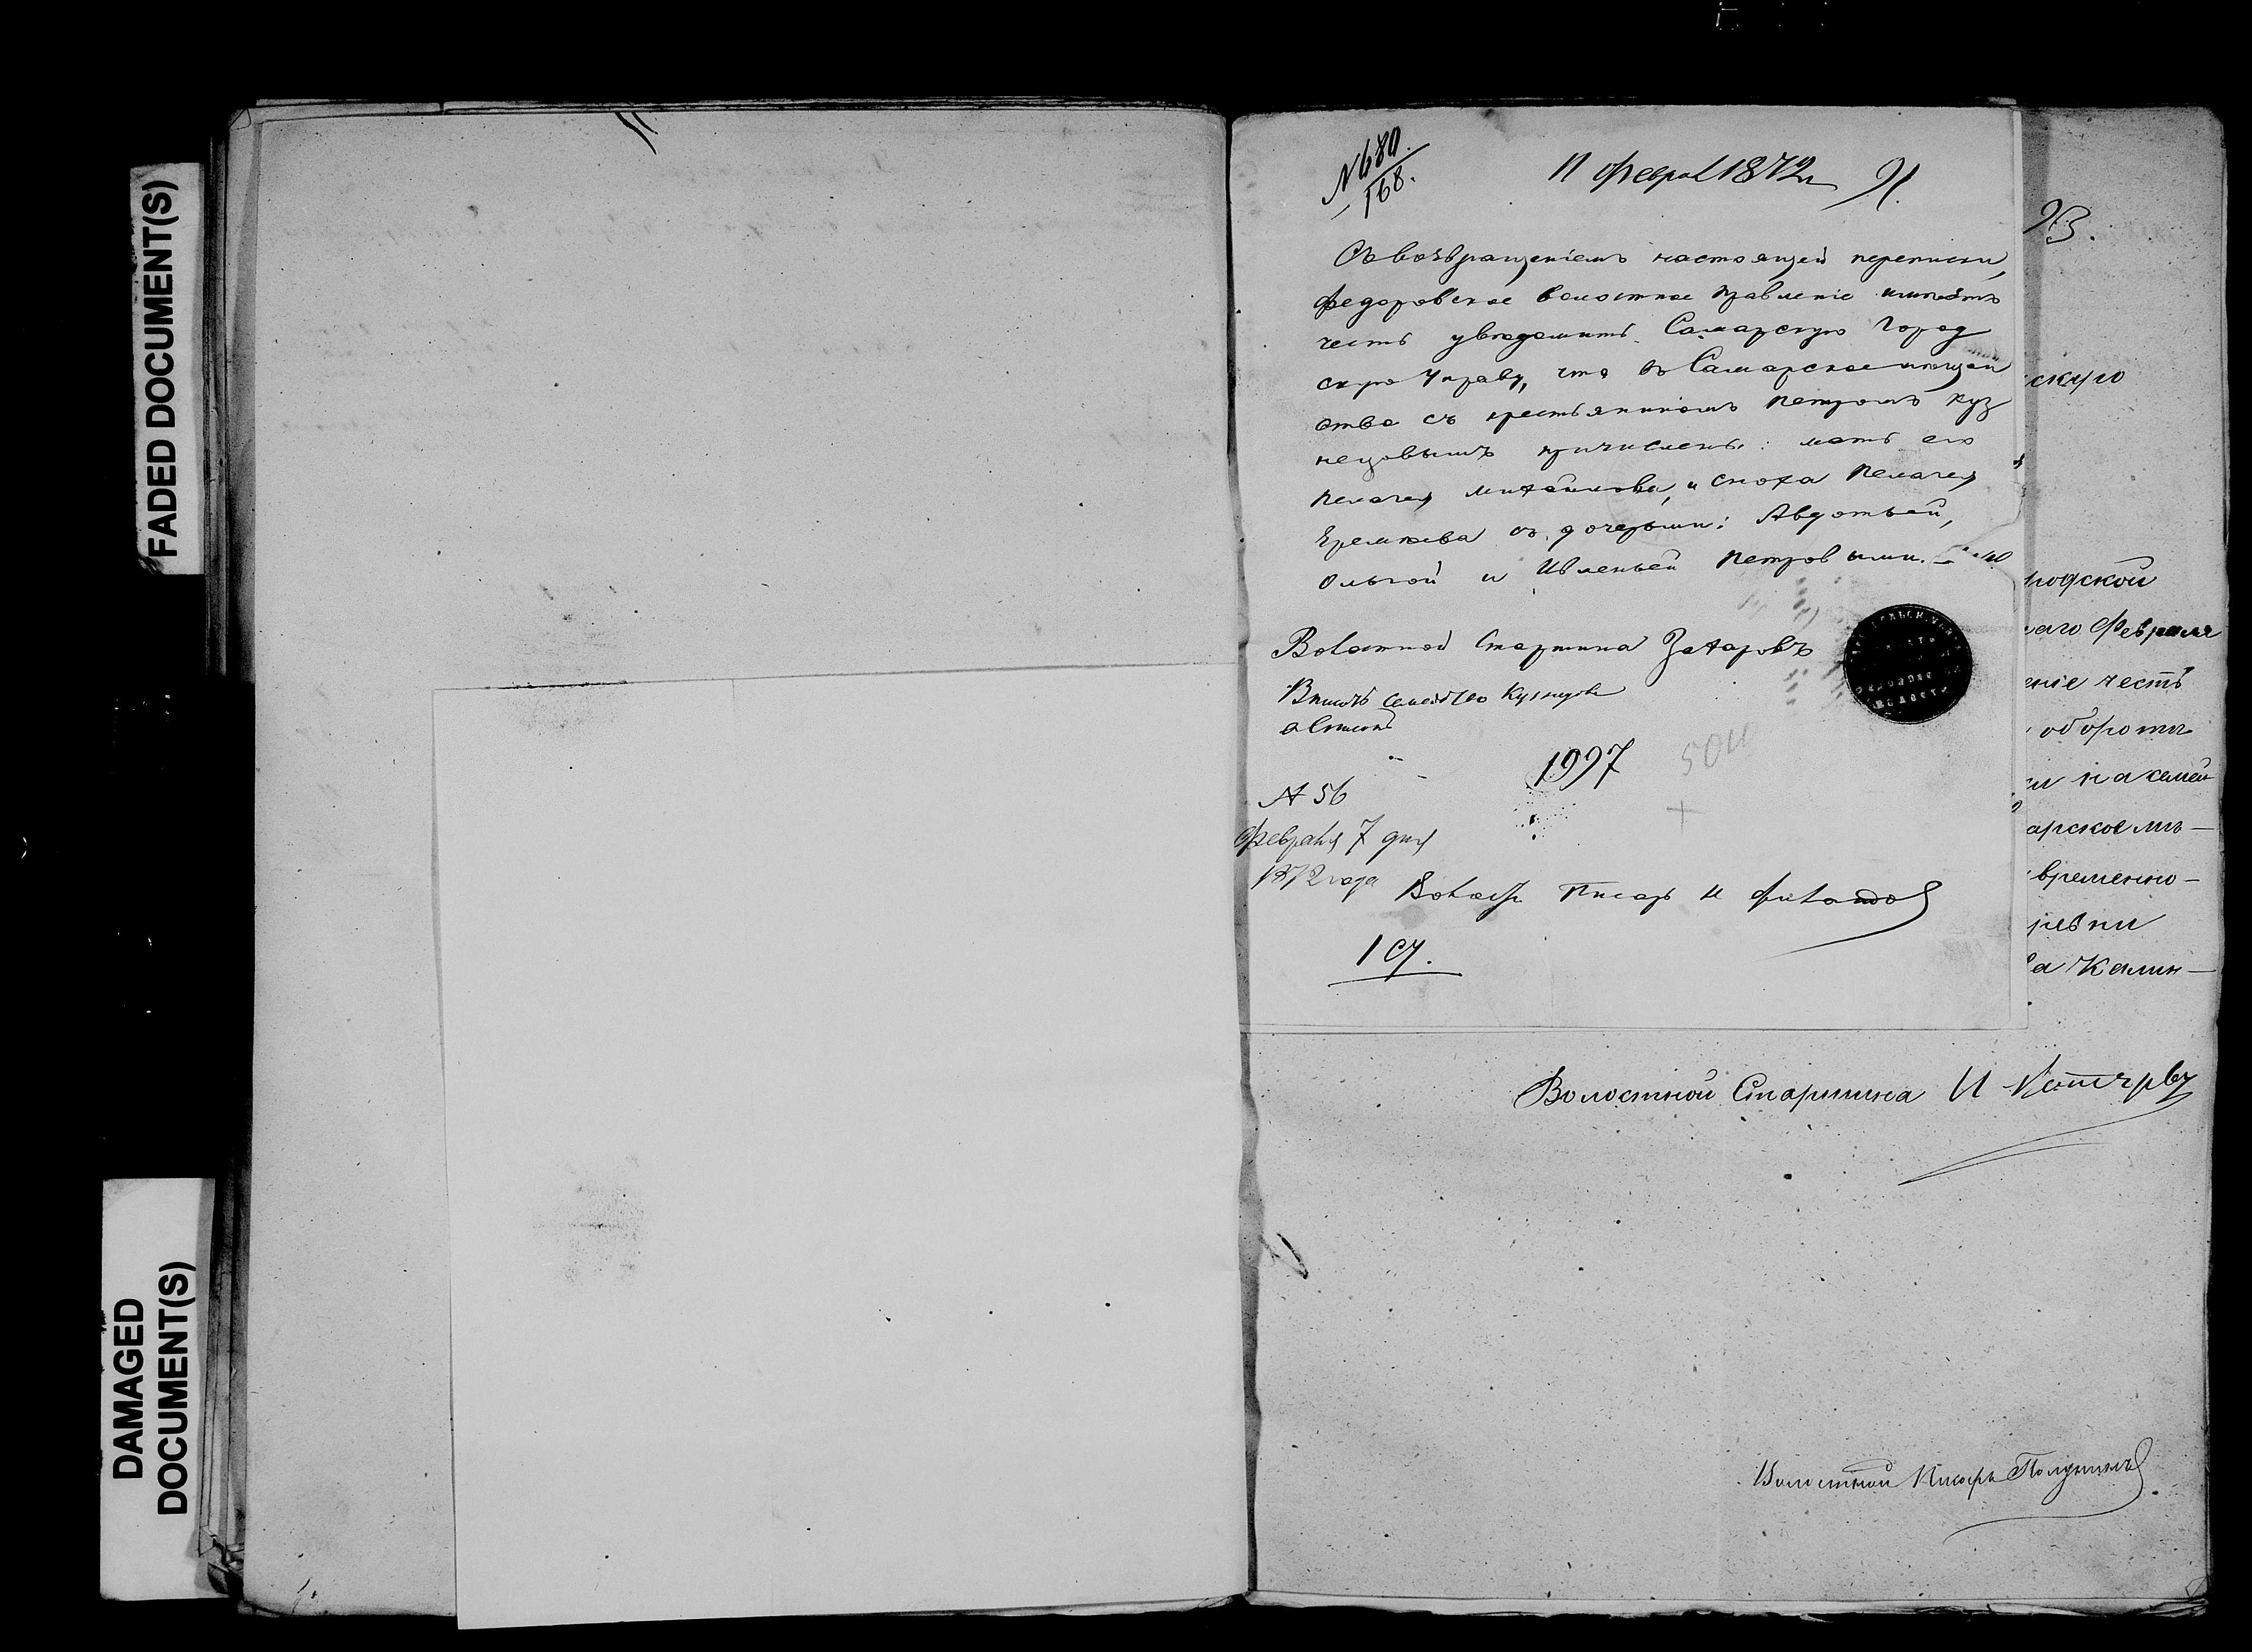 FADED DOCUMENT(S)
DAMAGED
DOCUMENT(S)
N 680.
168.
11 Феврал 1872 г
91.
Съ возвращеніемъ настоящей переписки,
Федоровское волостное правленіе имѣетъ
честь увѣдомить Самарскую Город
скую Управу, что въ Самарское мѣщан
ство съ крестьяниномъ Петромъ Куз
нецовымъ причислены: мать его
Пелагея Михайлова, и сноха Пелагея
Еремѣева съ дочерьми: Авдотьей,
Ольгой и Ивленьей Петровыми.
Волостной Старшина Захаровъ
семейство Кузнецова
1997
5010
№ 56
Февраля 7 дня
1872 года
Волост Писарь И
1 су.
93.
скую
родской
аго Февраля
еніе честь
оборотѣ
и на семей
арское мѣ-
временно-
ревни
а Калин-
Волостной Старшина И
Волостной Писарь Полунинъ